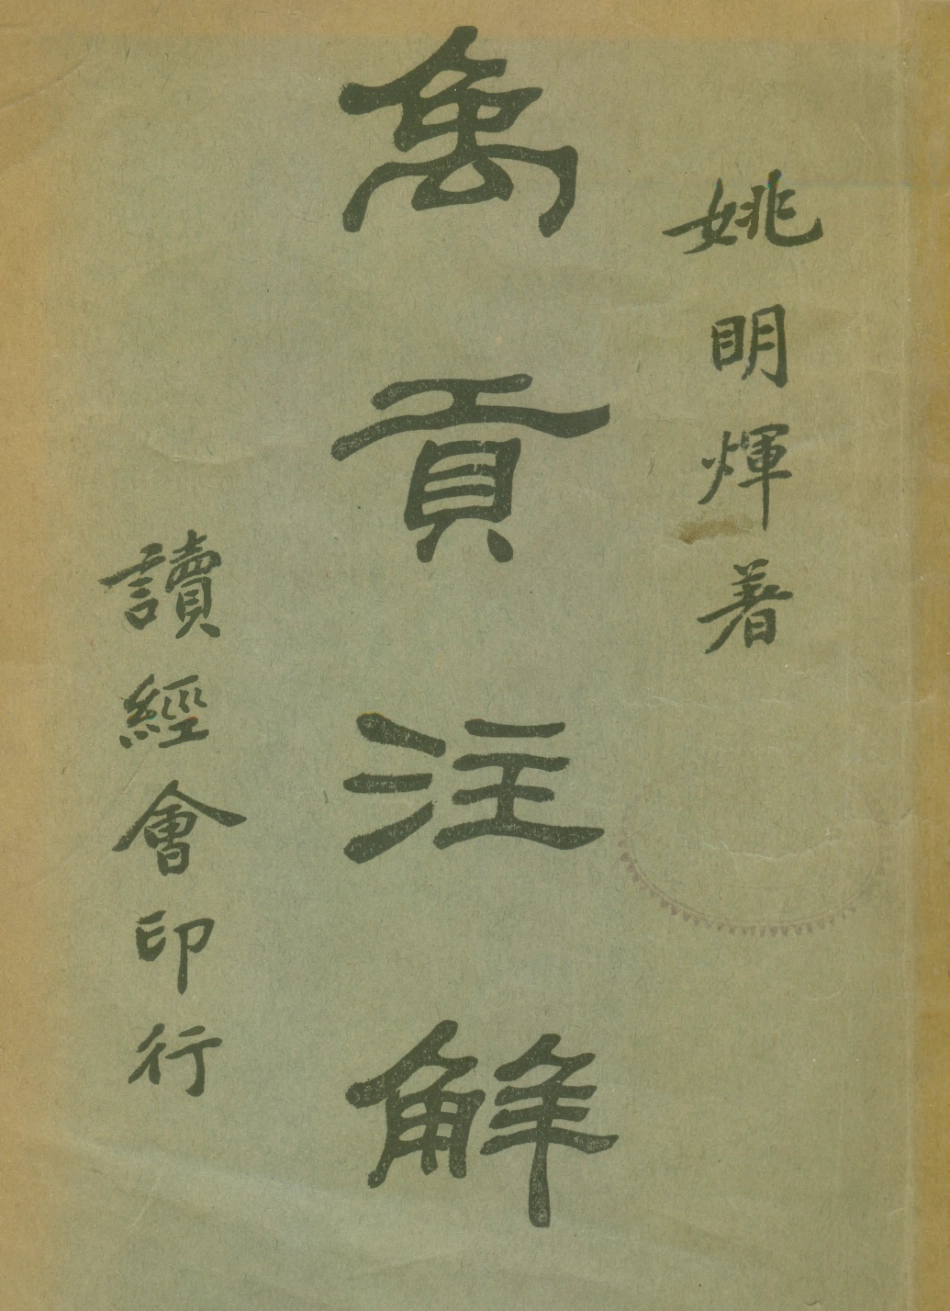 姚明煇著
禹貢注解
讀經會印行